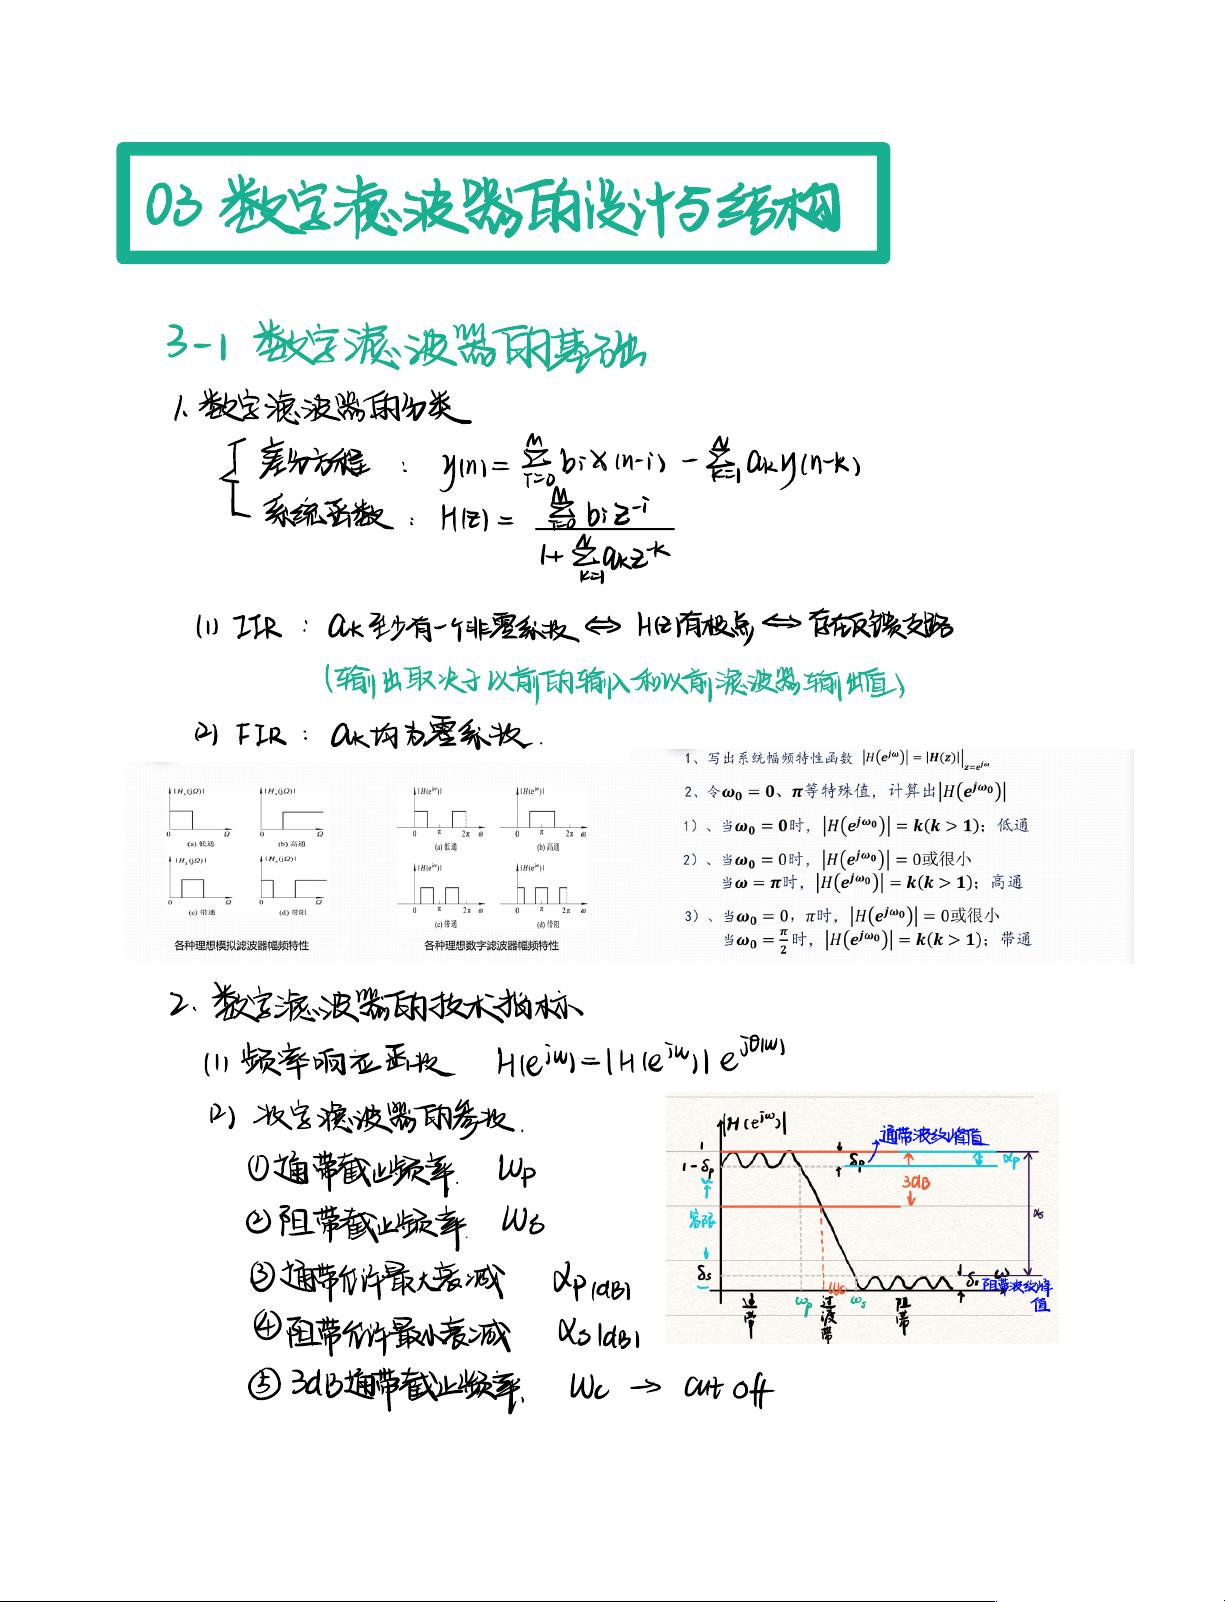 03 数字滤波器的设计与结构
3-1 数字滤波器的基础
1. 数字滤波器的分类
差分方程 : y(n) = \sum_{i=0}^{M} b_i x(n-i) - \sum_{k=1}^{N} a_k y(n-k)
系统函数 : H(z) = \frac{\sum_{i=0}^{M} b_i z^{-i}}{1+\sum_{k=1}^{N} a_k z^{-k}}
(1) IIR : a_k 至少有一个非零系数 ⇔ H(z)有极点 ⇔ 存在反馈支路
(输出取决于以前的输入和以前滤波器输出值)
(2) FIR : a_k 均为零系数.
|H_a(jΩ)| 0 Ω (a) 低通
|H_a(jΩ)| 0 Ω (b) 高通
|H_a(jΩ)| 0 Ω (c) 带通
|H_a(jΩ)| 0 Ω (d) 带阻
各种理想模拟滤波器幅频特性
|H(e^{jω})| 0 π 2π ω (a) 低通
|H(e^{jω})| 0 π 2π ω (b) 高通
|H(e^{jω})| 0 π 2π ω (c) 带通
|H(e^{jω})| 0 π 2π ω (d) 带阻
各种理想数字滤波器幅频特性
1、写出系统幅频特性函数 |H(e^{jω})| = |H(z)||_{z=e^{jω}}
2、令ω_0 = 0、π等特殊值，计算出|H(e^{jω_0})|
1）、当ω_0 = 0时，|H(e^{jω_0})| = k(k > 1)；低通
2）、当ω_0 = 0时，|H(e^{jω_0})| = 0或很小
当ω = π时，|H(e^{jω_0})| = k(k > 1)；高通
3）、当ω_0 = 0，π时，|H(e^{jω_0})| = 0或很小
当ω_0 = \frac{π}{2}时，|H(e^{jω_0})| = k(k > 1)；带通
2. 数字滤波器的技术指标
(1) 频率响应函数 H(e^{jω}) = |H(e^{jω})| e^{jθ(ω)}
(2) 数字滤波器的参数.
① 通带截止频率. ω_p
② 阻带截止频率. ω_s
③ 通带允许最大衰减 α_p (dB)
④ 阻带允许最小衰减 α_s (dB)
⑤ 3dB通带截止频率. ω_c → cut off
|H(e^{jω})|
通带波纹峰值
1
1-δ_p
δ_p
α_p
3dB
容限
α_s
δ_s
δ_s
ω
阻带波纹峰值
ω_p
ω_c
ω_s
通带
过渡带
阻带